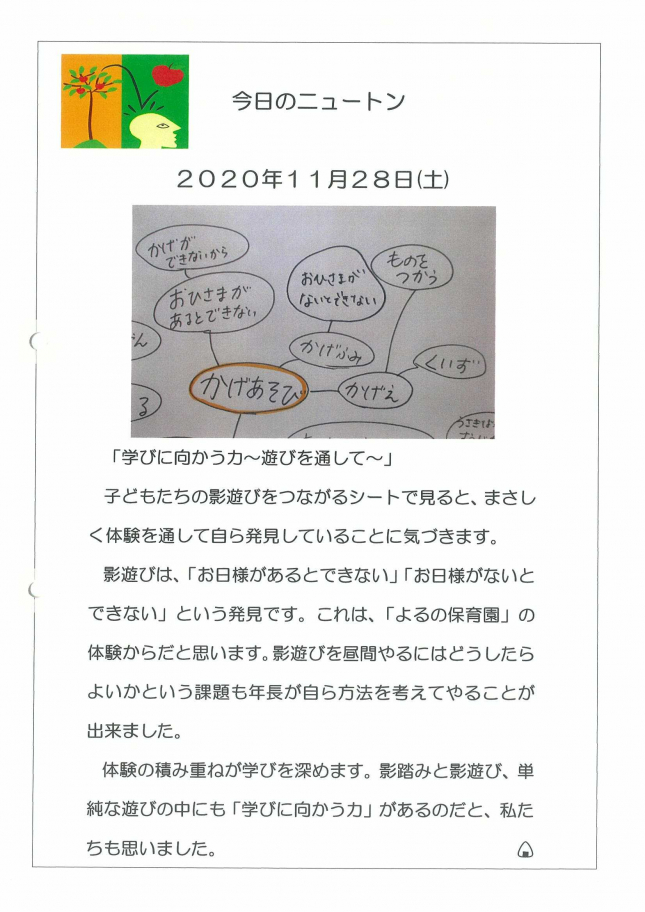 今日のニュートン
２０２０年１１月２８日(土)
かげが
できないから
おひさまが
あるとできない
おひさまが
ないとできない
ものを
つかう
かげふみ
くいず
かげあそび
かげえ
ん
る
「学びに向かう力～遊びを通して～」
子どもたちの影遊びをつながるシートで見ると、まさし
く体験を通して自ら発見していることに気づきます。
影遊びは、「お日様があるとできない」「お日様がないと
できない」という発見です。これは、「よるの保育園」の
体験からだと思います。影遊びを昼間やるにはどうしたら
よいかという課題も年長が自ら方法を考えてやることが
出来ました。
体験の積み重ねが学びを深めます。影踏みと影遊び、単
純な遊びの中にも「学びに向かう力」があるのだと、私た
ちも思いました。